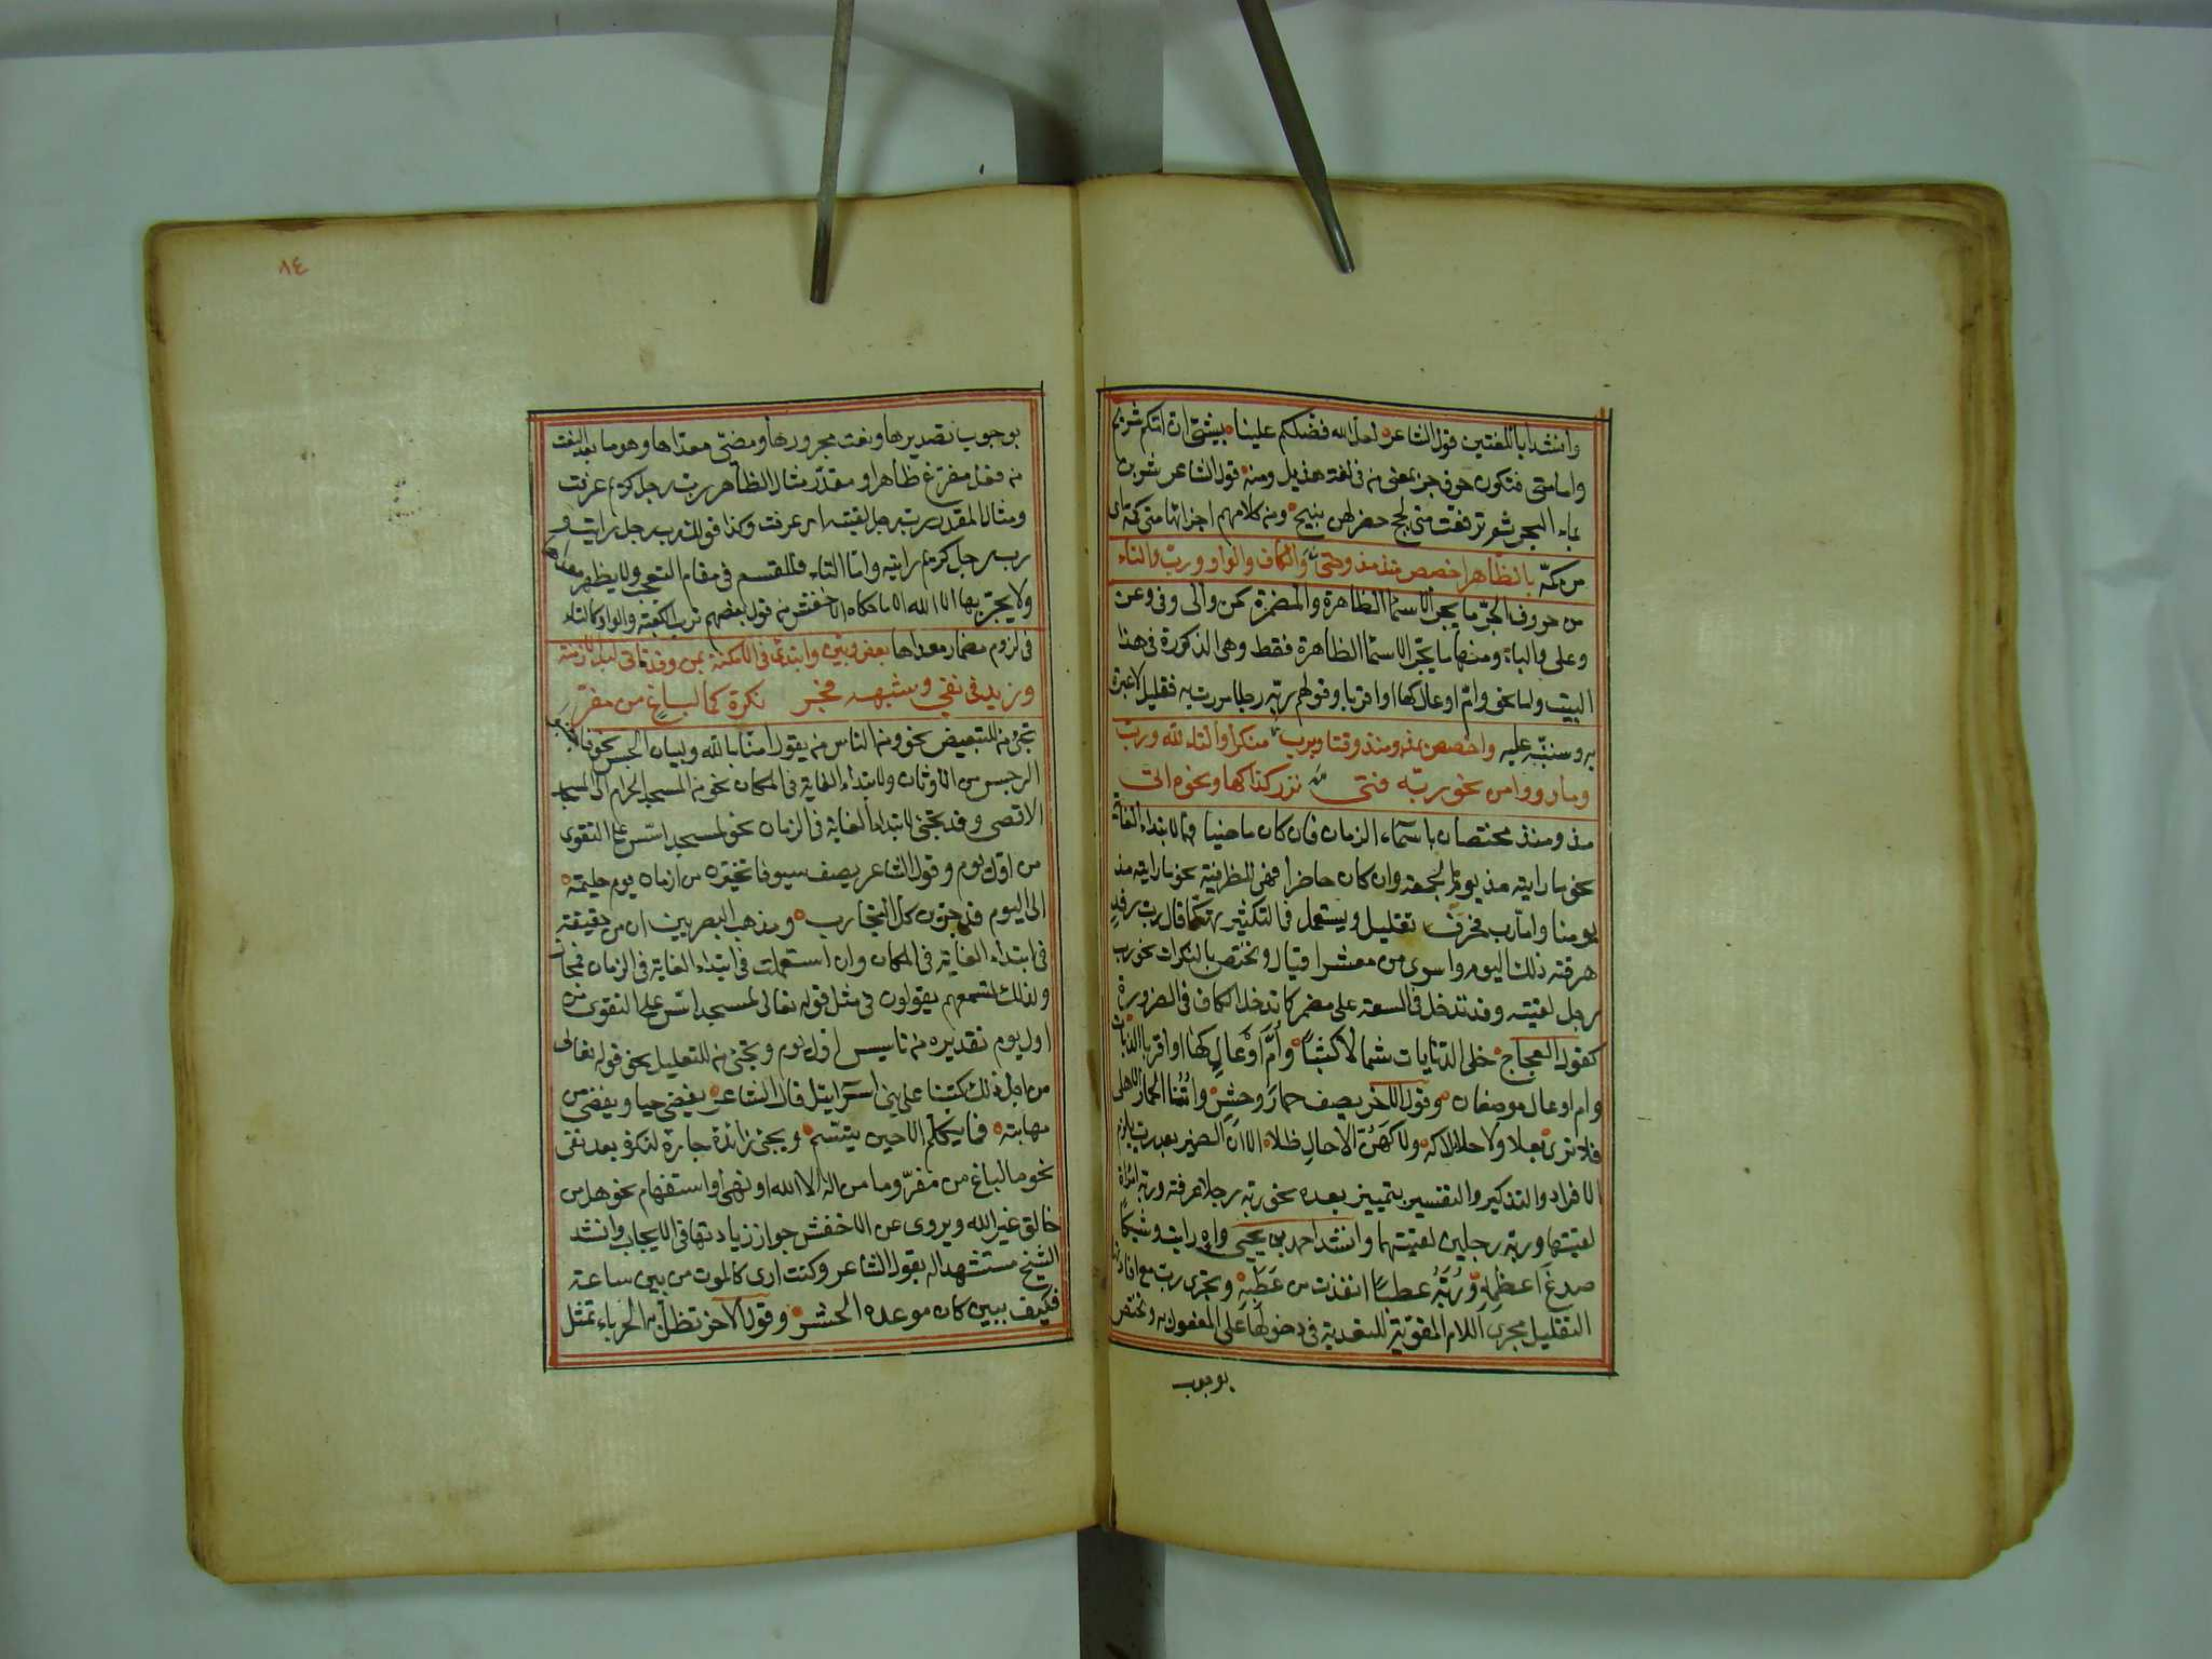 وانشدا باللغتين قول الشاعر لعل الله فضلكم علينا بشئ ان امكم شريم
واما متى فتكون حرف جر بمعنى من في لغة هذيل ومنه قول الشاعر شربن
بماء البحر ثم ترفعت متى لجج خضر لهن نئيج ومن كلامهم اخرجها متى كمه اى
من كمّه بالظاهر اخصص منذ مذ وحتى والكاف والواو ورب والتاء
من حروف الجر ما يجر الاسماء الظاهرة والمضمرة كمن والى وفى وعن
وعلى والباء ومنها ما يجر الاسماء الظاهرة فقط وهى المذكورة فى هذا
البيت ولما نحو وام اوعال كها او اقربا وقولهم ربه رجلا مررت به فقليل لا عبرة
به وسننبّه عليه واخصص بمذ ومنذ وقتا وبرب منكرا والتاء لله ورب
وما رووا من نحو ربه فتى نزر كذا كها ونحوه اتى
مذ ومنذ مختصان باسماء الزمان فان كان ماضيا فهما لابتداء الغاية
نحو ما رايته مذ يوم الجمعة وان كان حاضرا فهى للظرفية نحو ما رايته مذ
يومنا واما رب فحرف تقليل ويستعمل فى التكثير تهكما قال رب رفد
هرقته ذلك اليوم واسرى من معشر اقتال وتختص بالنكرات نحو رب
رجل لقيته وقد تدخل فى السعة على مضمر كما تدخل الكاف فى الضرورة
كقول العجاج خلى الذنابات شمالا كثبا وأمّ اوعال كها او اقربا الذنابات
وام اوعال موضعان وقول الاخر يصف حمار وحش واتنا الحمار الاهلى
فلا ترى بعلا ولا حلائلا كه ولا كهن الا حاظلا الا ان الضمير بعد رب يلزم
الافراد والتذكير والتفسير بتمييز بعده نحو ربه رجلا عرفته وربه امراة
لقيتها وربه رجلين لقيتهما وانشد احمد بن يحيى واه رايت وشيكا
صدع اعظمه وربه عطبا انقذت من عطبه وتجرى رب مع افادتها
التقليل مجرى اللام المقوّية للتعدية فى دخولها على المفعول به وتختص
بوجوب
٨٤
بوجوب تصديرها ونعت مجرورها ومضىّ معداها وهو ما بعد النعت
من فعل مفرغ ظاهر او مقدّر مثال الظاهر رب رجل كريم عرفت
ومثال المقدر رب رجل لقيته اى عرفت وكذا قولك رب رجل رايت و
رب رجل كريم رايته واما التاء فللقسم فى مقام التعجب ولا يظهر معها
ولا يجرّ بها الا الله الا ما حكاه الاخفش من قول بعضهم ترب الكعبة والواو كالتاء
فى لزوم مضمار معداها بعض وبين وابتدئ فى الامكنة بمن وقد تاتى لبدء الازمنة
وزيد فى نفى وشبهه فجر نكرة كما لباغ من مفرّ
تجئ من للتبعيض نحو ومن الناس من يقول امنا بالله ولبيان الجنس نحو فاجتنبوا
الرجس من الاوثان ولابتداء الغاية فى المكان نحو من المسجد الحرام الى المسجد
الاقصى وقد تجئ لابتداء الغاية فى الزمان نحو لمسجد اسّس على التقوى
من اول يوم وقول الشاعر يصف سيوفا تخيّرن من ازمان يوم حليمة
الى اليوم قد جرّبن كل التجارب ومذهب البصريين ان من حقيقة
فى ابتداء الغاية فى المكان وان استعملت فى ابتداء الغاية فى الزمان فمجاز
ولذلك تسمعهم يقولون فى مثل قوله تعالى لمسجد اسّس على التقوى من
اول يوم تقديره من تاسيس اول يوم وتجئ من للتعليل نحو قوله تعالى
من اجل ذلك كتبنا على بنى اسرائيل قال الشاعر يغضى حيا ويغضى من
مهابته فما يكلّم الا حين يبتسم وتجئ زائدة جارة لنكرة بعد نفى
نحو ما لباغ من مفرّ وما من اله الا الله او نهى او استفهام نحو هل من
خالق غير الله ويروى عن الاخفش جواز زيادتها فى الايجاب وانشد
الشيخ مستشهدا له بقول الشاعر وكنت ارى كالموت من بين ساعة
فكيف ببين كان موعده الحشر وقول الاخر تظلّ به الحرباء تمثل